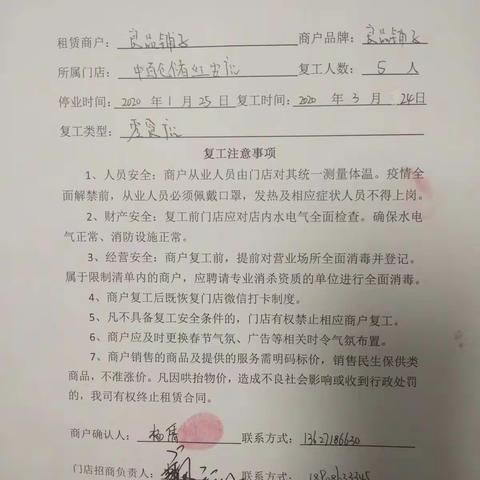 租赁商户：良品铺子 商户品牌：良品铺子
所属门店：中百仓储红安店 复工人数：5 人
停业时间：2020 年 1 月 25 日 复工时间：2020 年 3 月 24日
复工类型：零食店
复工注意事项
1、人员安全：商户从业人员由门店对其统一测量体温。疫情全
面解禁前，从业人员必须佩戴口罩，发热及相应症状人员不得上岗。
2、财产安全：复工前门店应对店内水电气全面检查。确保水电
气正常、消防设施正常。
3、经营安全：商户复工前，提前对营业场所全面消毒并登记。
属于限制清单内的商户，应聘请专业消杀资质的单位进行全面消毒。
4、商户复工后既恢复门店微信打卡制度。
5、凡不具备复工安全条件的，门店有权禁止相应商户复工。
6、商户应及时更换春节气氛、广告等相关时令气氛布置。
7、商户销售的商品及提供的服务需明码标价，销售民生保供类
商品，不准涨价。凡因哄抬物价，造成不良社会影响或收到行政处罚
的，我司有权终止租赁合同。
商户确认人： 联系方式：13627186630
门店招商负责人： 联系方式：